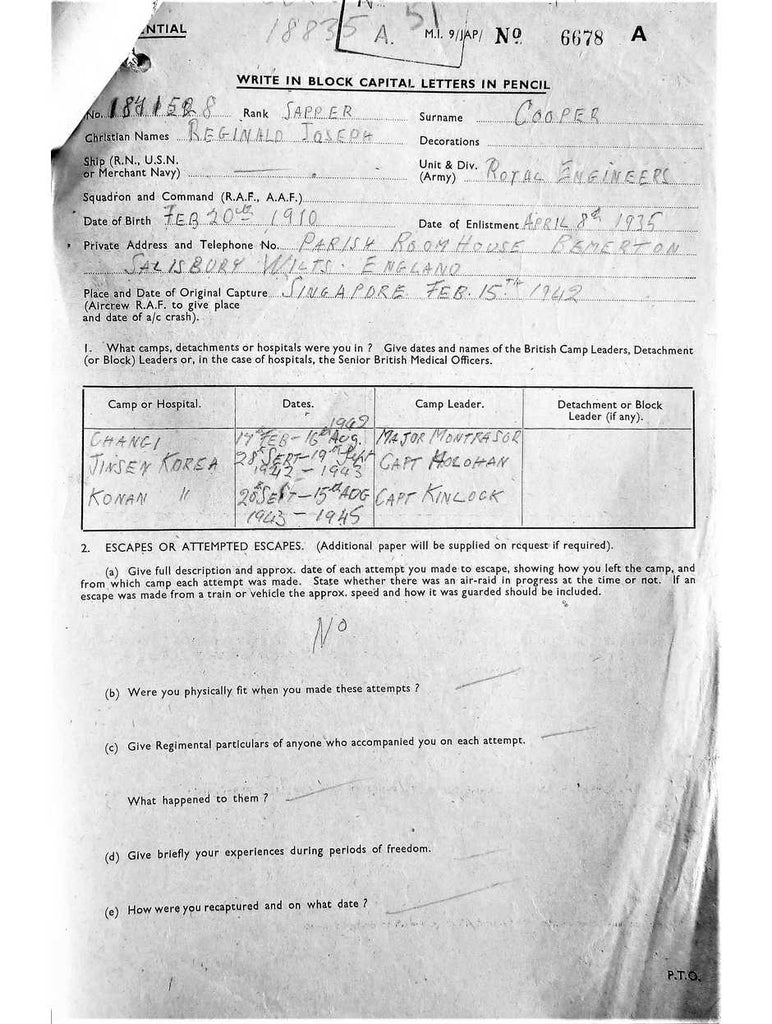 NTIAL
18835 A. 51 M.I. 9/JAP/ No 6678 A
WRITE IN BLOCK CAPITAL LETTERS IN PENCIL
No. 1871528 Rank SAPPER Surname COOPER
Christian Names REGINALD JOSEPH Decorations
Ship (R.N., U.S.N. or Merchant Navy) — Unit & Div. (Army) ROYAL ENGINEERS
Squadron and Command (R.A.F., A.A.F.)
Date of Birth FEB 20th 1910 Date of Enlistment APRIL 8th 1935
Private Address and Telephone No. PARISH ROOM HOUSE BEMERTON
SALISBURY WILTS. ENGLAND
Place and Date of Original Capture SINGAPORE FEB. 15TH 1942
(Aircrew R.A.F. to give place
and date of a/c crash).
1. What camps, detachments or hospitals were you in ? Give dates and names of the British Camp Leaders, Detachment
(or Block) Leaders or, in the case of hospitals, the Senior British Medical Officers.
Camp or Hospital. Dates. Camp Leader. Detachment or Block Leader (if any).
CHANGI 17th FEB - 16th AUG. 1942 MAJOR MONTRASOR
JINSEN KOREA 28th SEPT - 19th SEPT 1942 - 1943 CAPT HOLOHAN
KONAN " 20th SEPT - 15th AUG 1943 - 1945 CAPT KINLOCK
2. ESCAPES OR ATTEMPTED ESCAPES. (Additional paper will be supplied on request if required).
(a) Give full description and approx. date of each attempt you made to escape, showing how you left the camp, and
from which camp each attempt was made. State whether there was an air-raid in progress at the time or not. If an
escape was made from a train or vehicle the approx. speed and how it was guarded should be included.
NO
(b) Were you physically fit when you made these attempts ?
(c) Give Regimental particulars of anyone who accompanied you on each attempt.
What happened to them ?
(d) Give briefly your experiences during periods of freedom.
(e) How were you recaptured and on what date ?
P.T.O.